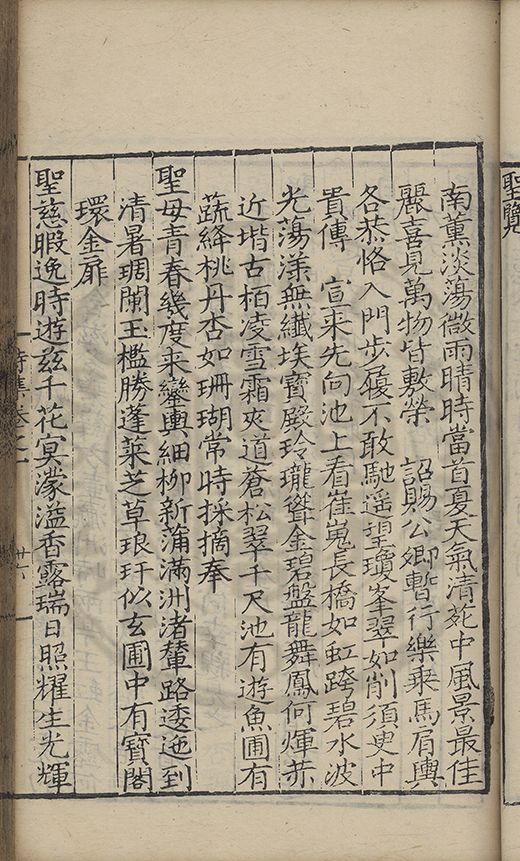 聖覽
南薰淡蕩微雨晴時當首夏天氣清苑中風景最佳
麗喜見萬物皆敷榮　詔賜公卿暫行樂乘馬肩輿
各恭恪入門步屧不敢馳遥望瓊峯翠如削須臾中
貴傳　宣来先向池上看崔嵬長橋如虹跨碧水波
光蕩漾無纖埃寶殿玲瓏聳金碧盤龍舞鳳何煇赤
近堦古栢凌雪霜夾道蒼松翠千尺池有遊魚圃有
蔬絳桃丹杏如珊瑚常時採摘奉
聖母青春幾度来鑾輿細柳新蒲滿洲渚輦路逶迤到
清暑琱闌玉檻勝蓬萊芝草琅玕似玄圃中有寳閣
環金扉
聖慈暇逸時遊兹千花冥濛溢香露瑞日照耀生光輝
詩集卷之
廿六